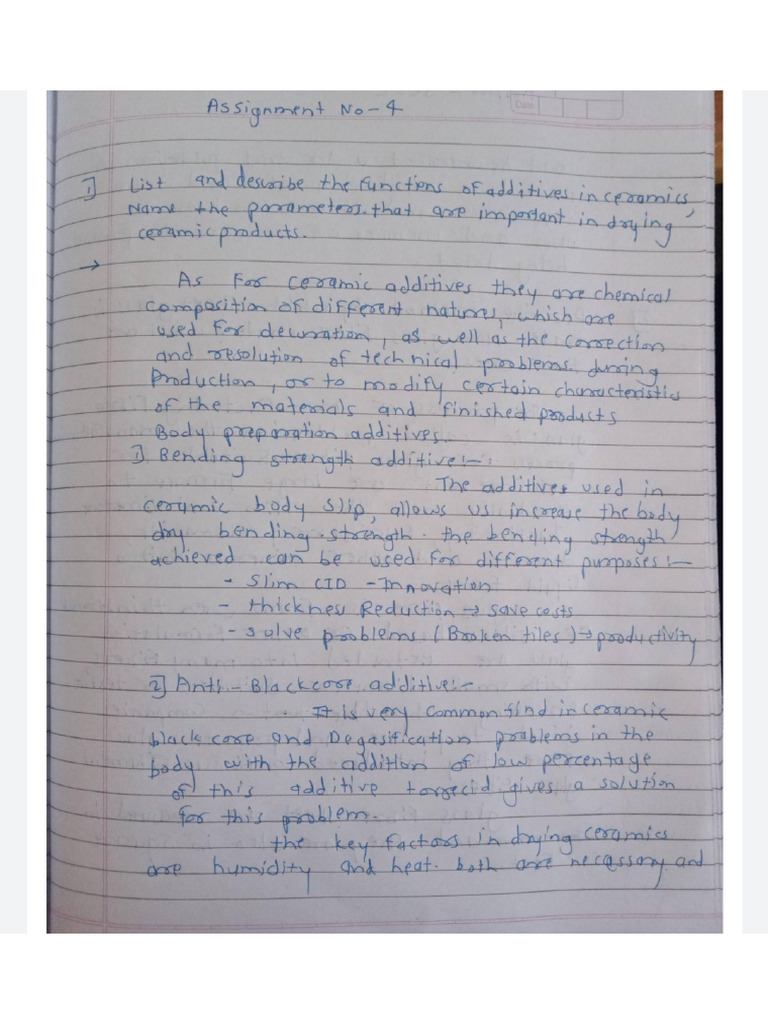 Date
Assignment No-4
1] List and describe the functions of additives in ceramics,
Name the parameters that are important in drying
ceramic products.
→
As For ceramic additives they are chemical
composition of different natures, which are
used for decuration, as well as the correction
and resolution of technical problems during
Production, or to modify certain characteristics
of the materials and finished products
Body preparation additives.
1) Bending strength additive:-
The additives used in
ceramic body slip, allows us increase the body
dry bending strength. the bending strength
achieved can be used for different purposes:-
- Slim CID - Innovation
- thickness Reduction → save costs
- solve problems (Broken tiles) → productivity
2] Anti-Blackcore additive:-
It is very common find in ceramic
black core and Degasification problems in the
body with the addition of low percentage
of this additive torrecid gives a solution
for this problem.
the key factors in drying ceramics
are humidity and heat. both are necassary and